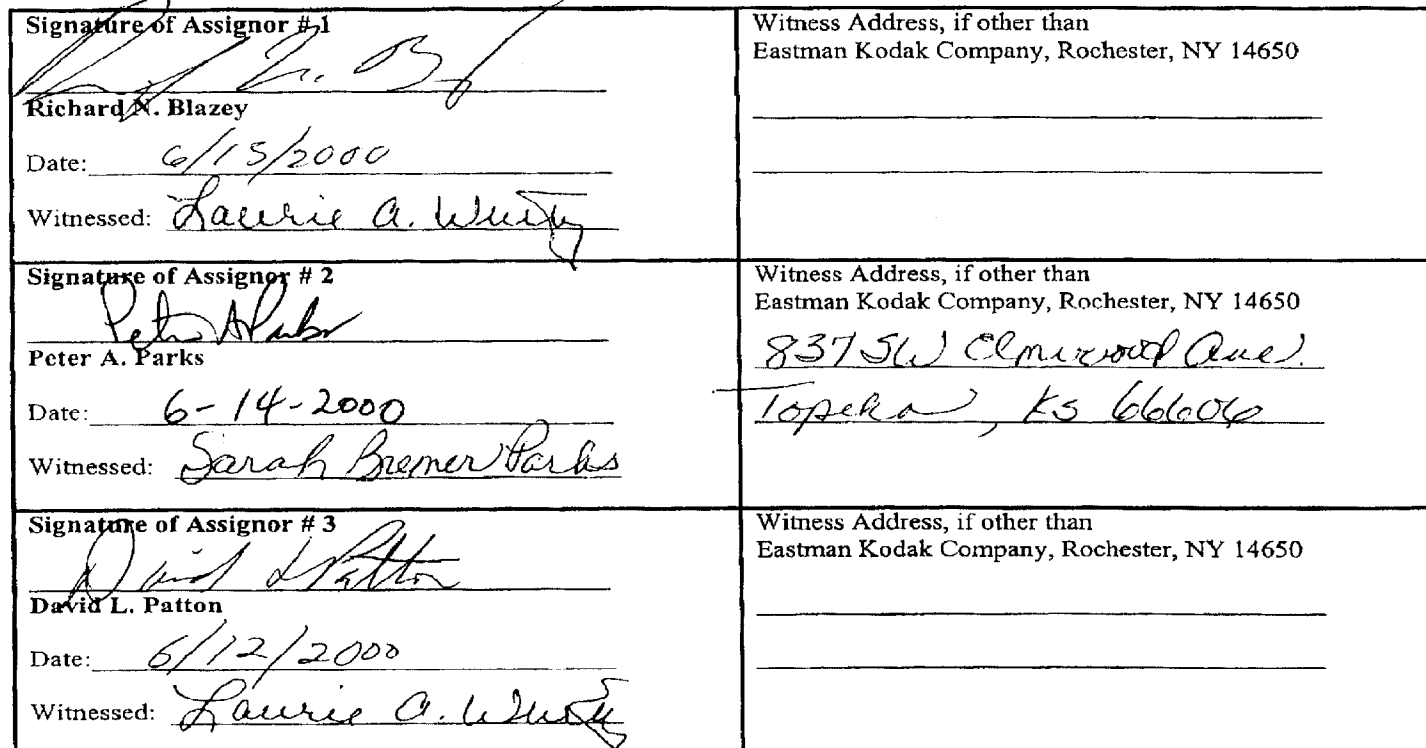 Signature of Assignor # 1
Richard N. Blazey
Date: 6/15/2000
Witnessed: Laurie A.
Witness Address, if other than
Eastman Kodak Company, Rochester, NY 14650
Signature of Assignor # 2
Peter A Parks
Peter A. Parks
Date: 6-14-2000
Witnessed: Sarah Bremer Parks
Witness Address, if other than
Eastman Kodak Company, Rochester, NY 14650
837 SW Elmwood Ave.
Topeka, KS 66606
Signature of Assignor # 3
David L Patton
David L. Patton
Date: 6/12/2000
Witnessed: Laurie A.
Witness Address, if other than
Eastman Kodak Company, Rochester, NY 14650